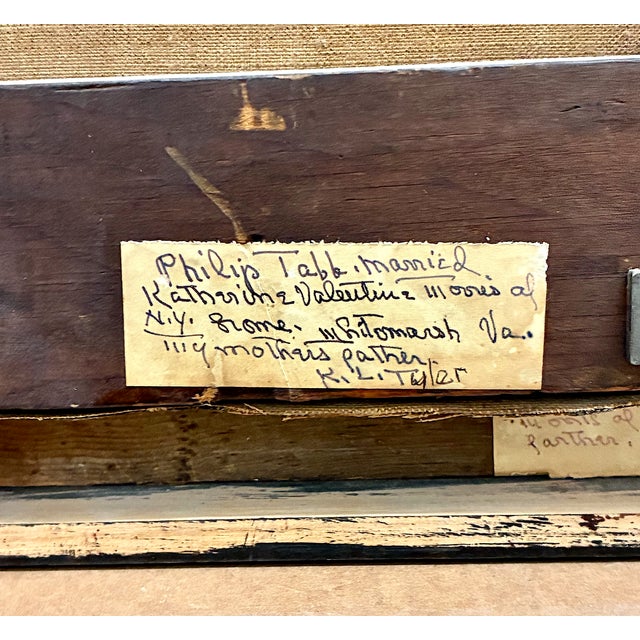 Philip Tabb. married
Katherine Valentine Moore's of
N.Y. Home. Whitomarsh Va.
My mothers father.
K. L. Tyler
of
farther.